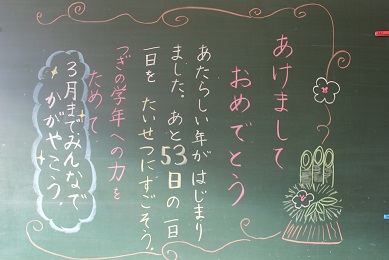 あけまして
おめでとう
あたらしい年がはじまり
ました。あと53日の一日
一日を たいせつにすごそう。
つぎの学年への力を
ためて
3月までみんなで
かがやこう。